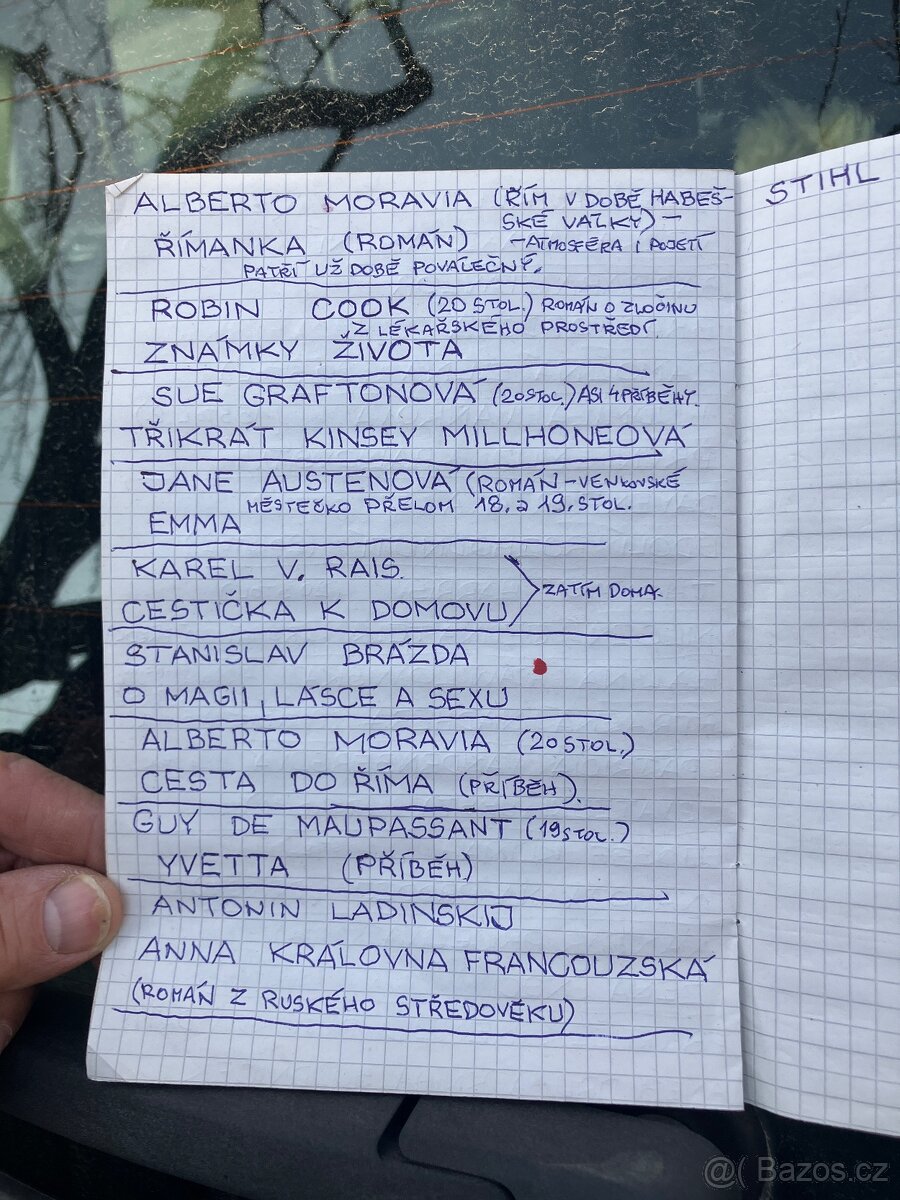 ALBERTO MORAVIA (ŘÍM V DOBĚ HABEŠ-
SKÉ VÁLKY) -
ŘÍMANKA (ROMÁN) - ATMOSFÉRA I POJETÍ
PATŘÍ UŽ DOBĚ POVÁLEČNÝ.
ROBIN COOK (20 STOL.) ROMÁN O ZLOČINU
Z LÉKAŘSKÉHO PROSTŘEDÍ.
ZNÁMKY ŽIVOTA
SUE GRAFTONOVÁ (20 STOL.) ASI 4 PŘÍBĚHY.
TŘIKRÁT KINSEY MILLHONEOVÁ
JANE AUSTENOVÁ (ROMÁN - VENKOVSKÉ
MĚSTEČKO PŘELOM 18. a 19. STOL.
EMMA
KAREL V. RAIS.
ZATÍM DOMA.
CESTIČKA K DOMOVU
STANISLAV BRÁZDA
O MAGII, LÁSCE A SEXU
ALBERTO MORAVIA (20 STOL.)
CESTA DO ŘÍMA (PŘÍBĚH).
GUY DE MAUPASSANT (19 STOL.)
YVETTA (PŘÍBĚH)
ANTONIN LADINSKIJ
ANNA KRÁLOVNA FRANCOUZSKÁ
(ROMÁN Z RUSKÉHO STŘEDOVĚKU)
STIHL
@( Bazos.cz